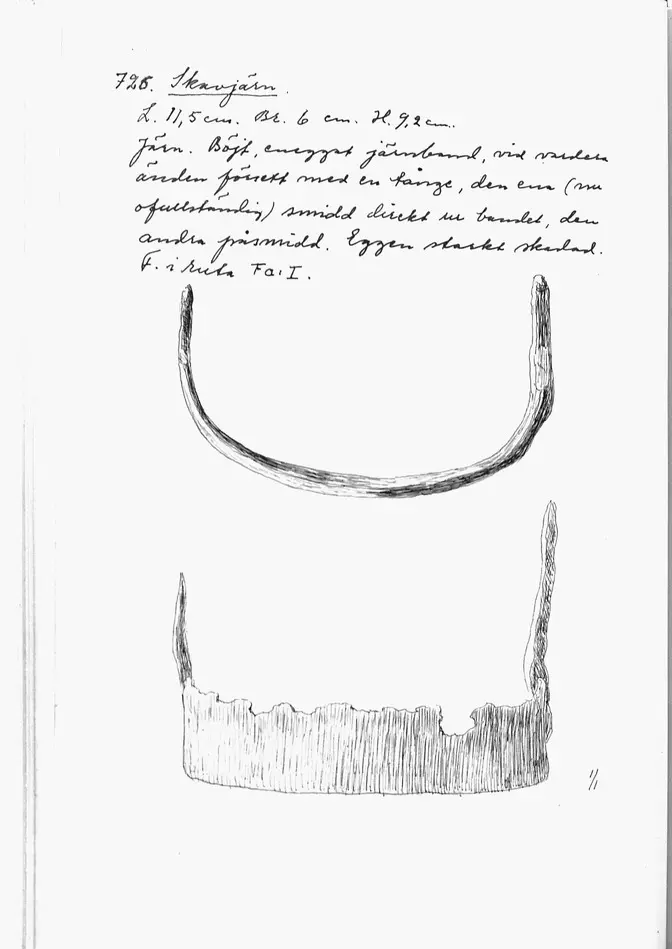 726. Skavjärn.
L. 11,5 cm. Br. 6 cm. H. 9,2 cm.
Järn. Böjt, eneggat järnband, vid vardera
änden försett med en tånge, den ena (nu
ofullständig) smidd direkt ur bandet, den
andra påsmidd. Eggen starkt skadad.
F. i ruta Fa: I.
1/1